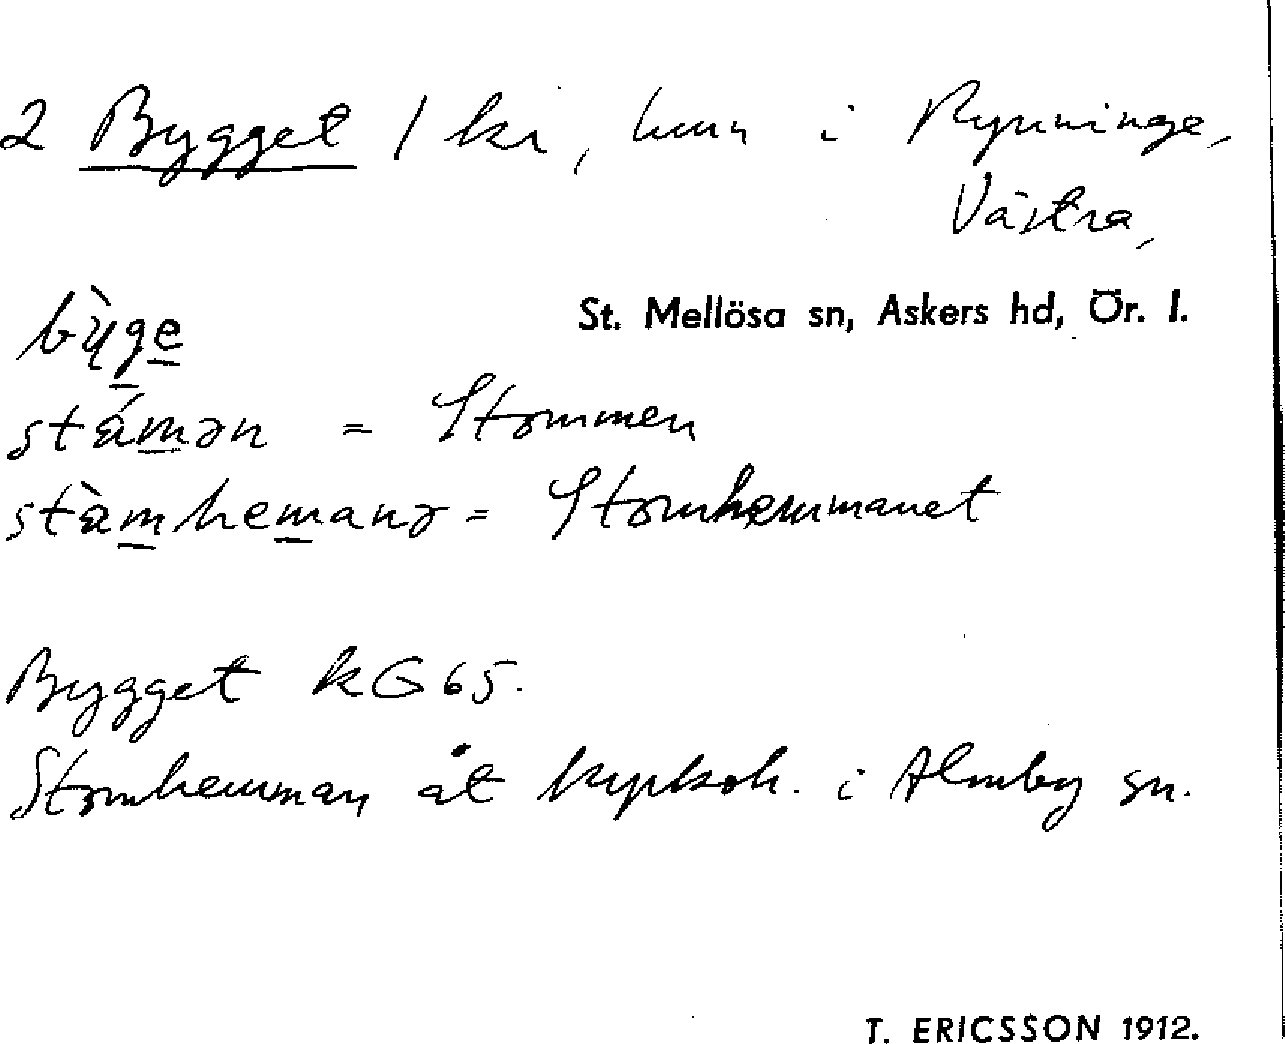 2 Bygget 1 kr, hmn i Rynninge,
Västra,
St. Mellösa sn, Askers hd, Ör. l.
bỳge
stámən = Stommen
stàmhemanə = Stomhemmanet
Bygget kG65.
Stomhemman åt kyrkoh. i Almby sn.
T. ERICSSON 1912.